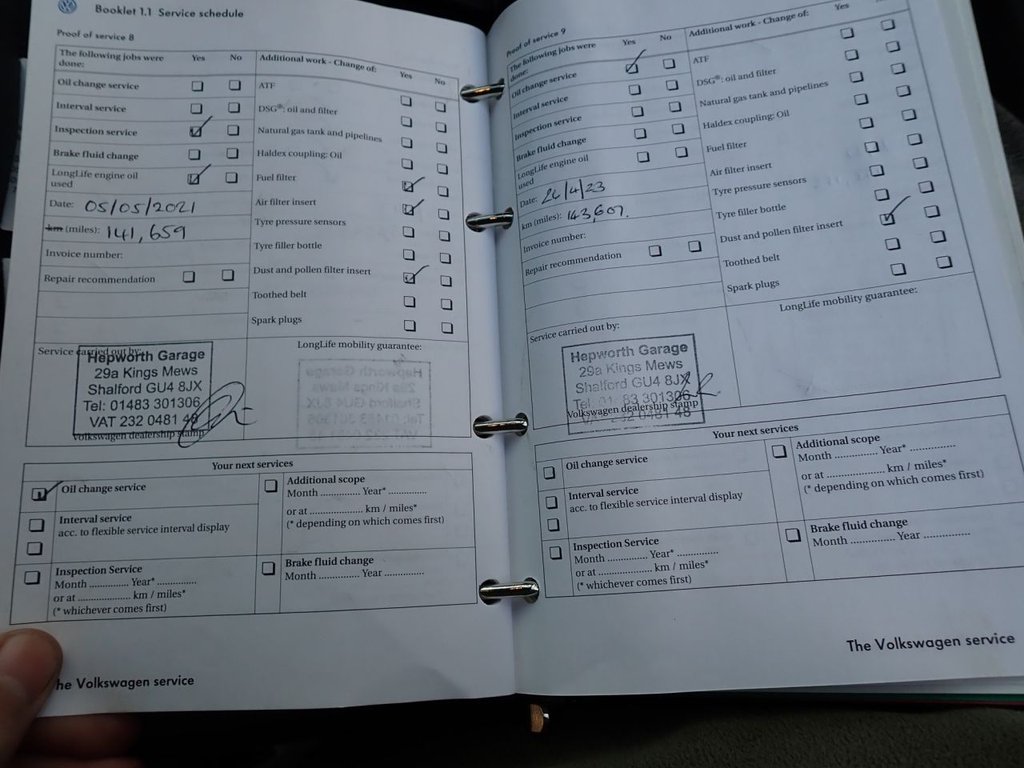 Booklet 1.1 Service schedule
Proof of service 8
The following jobs were done: Yes No
Oil change service
Interval service
Inspection service
Brake fluid change
LongLife engine oil used
Date: 05/05/2021
km (miles): 141,659
Invoice number:
Repair recommendation
Additional work - Change of: Yes No
ATF
DSG®: oil and filter
Natural gas tank and pipelines
Haldex coupling: Oil
Fuel filter
Air filter insert
Tyre pressure sensors
Tyre filler bottle
Dust and pollen filter insert
Toothed belt
Spark plugs
Service carried out by:
Hepworth Garage
29a Kings Mews
Shalford GU4 8JX
Tel: 01483 301306
VAT 232 0481 48
Volkswagen dealership stamp
LongLife mobility guarantee:
Your next services
Oil change service
Interval service
acc. to flexible service interval display
Inspection Service
Month .............. Year* ..............
or at .................... km / miles*
(* whichever comes first)
Additional scope
Month .............. Year* ..............
or at .................... km / miles*
(* depending on which comes first)
Brake fluid change
Month .............. Year ..............
The Volkswagen service
Proof of service 9
The following jobs were done: Yes No
Oil change service
Interval service
Inspection service
Brake fluid change
LongLife engine oil used
Date: 26/4/23
km (miles): 143,607.
Invoice number:
Repair recommendation
Additional work - Change of: Yes
ATF
DSG®: oil and filter
Natural gas tank and pipelines
Haldex coupling: Oil
Fuel filter
Air filter insert
Tyre pressure sensors
Tyre filler bottle
Dust and pollen filter insert
Toothed belt
Spark plugs
Service carried out by:
Hepworth Garage
29a Kings Mews
Shalford GU4 8JX
Tel: 01483 301306
VAT 232 0481 48
Volkswagen dealership stamp
LongLife mobility guarantee:
Your next services
Oil change service
Interval service
acc. to flexible service interval display
Inspection Service
Month .............. Year* ..............
or at .................... km / miles*
(* whichever comes first)
Additional scope
Month .............. Year* ..............
or at .................... km / miles*
(* depending on which comes first)
Brake fluid change
Month .............. Year ..............
The Volkswagen service